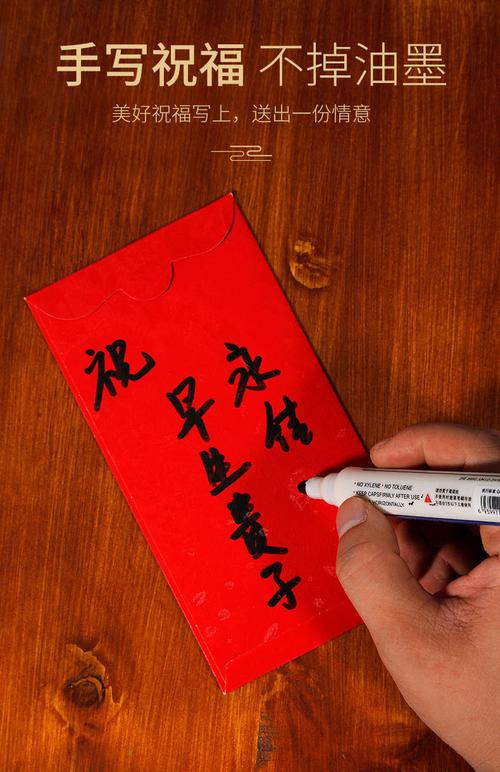 手写祝福 不掉油墨
美好祝福写上，送出一份情意
祝
早生贵子
永佳
• NO XYLENE • NO TOLUENE
KEEP CAPS FIRMLY AFTER USE
HORIZONTALLY